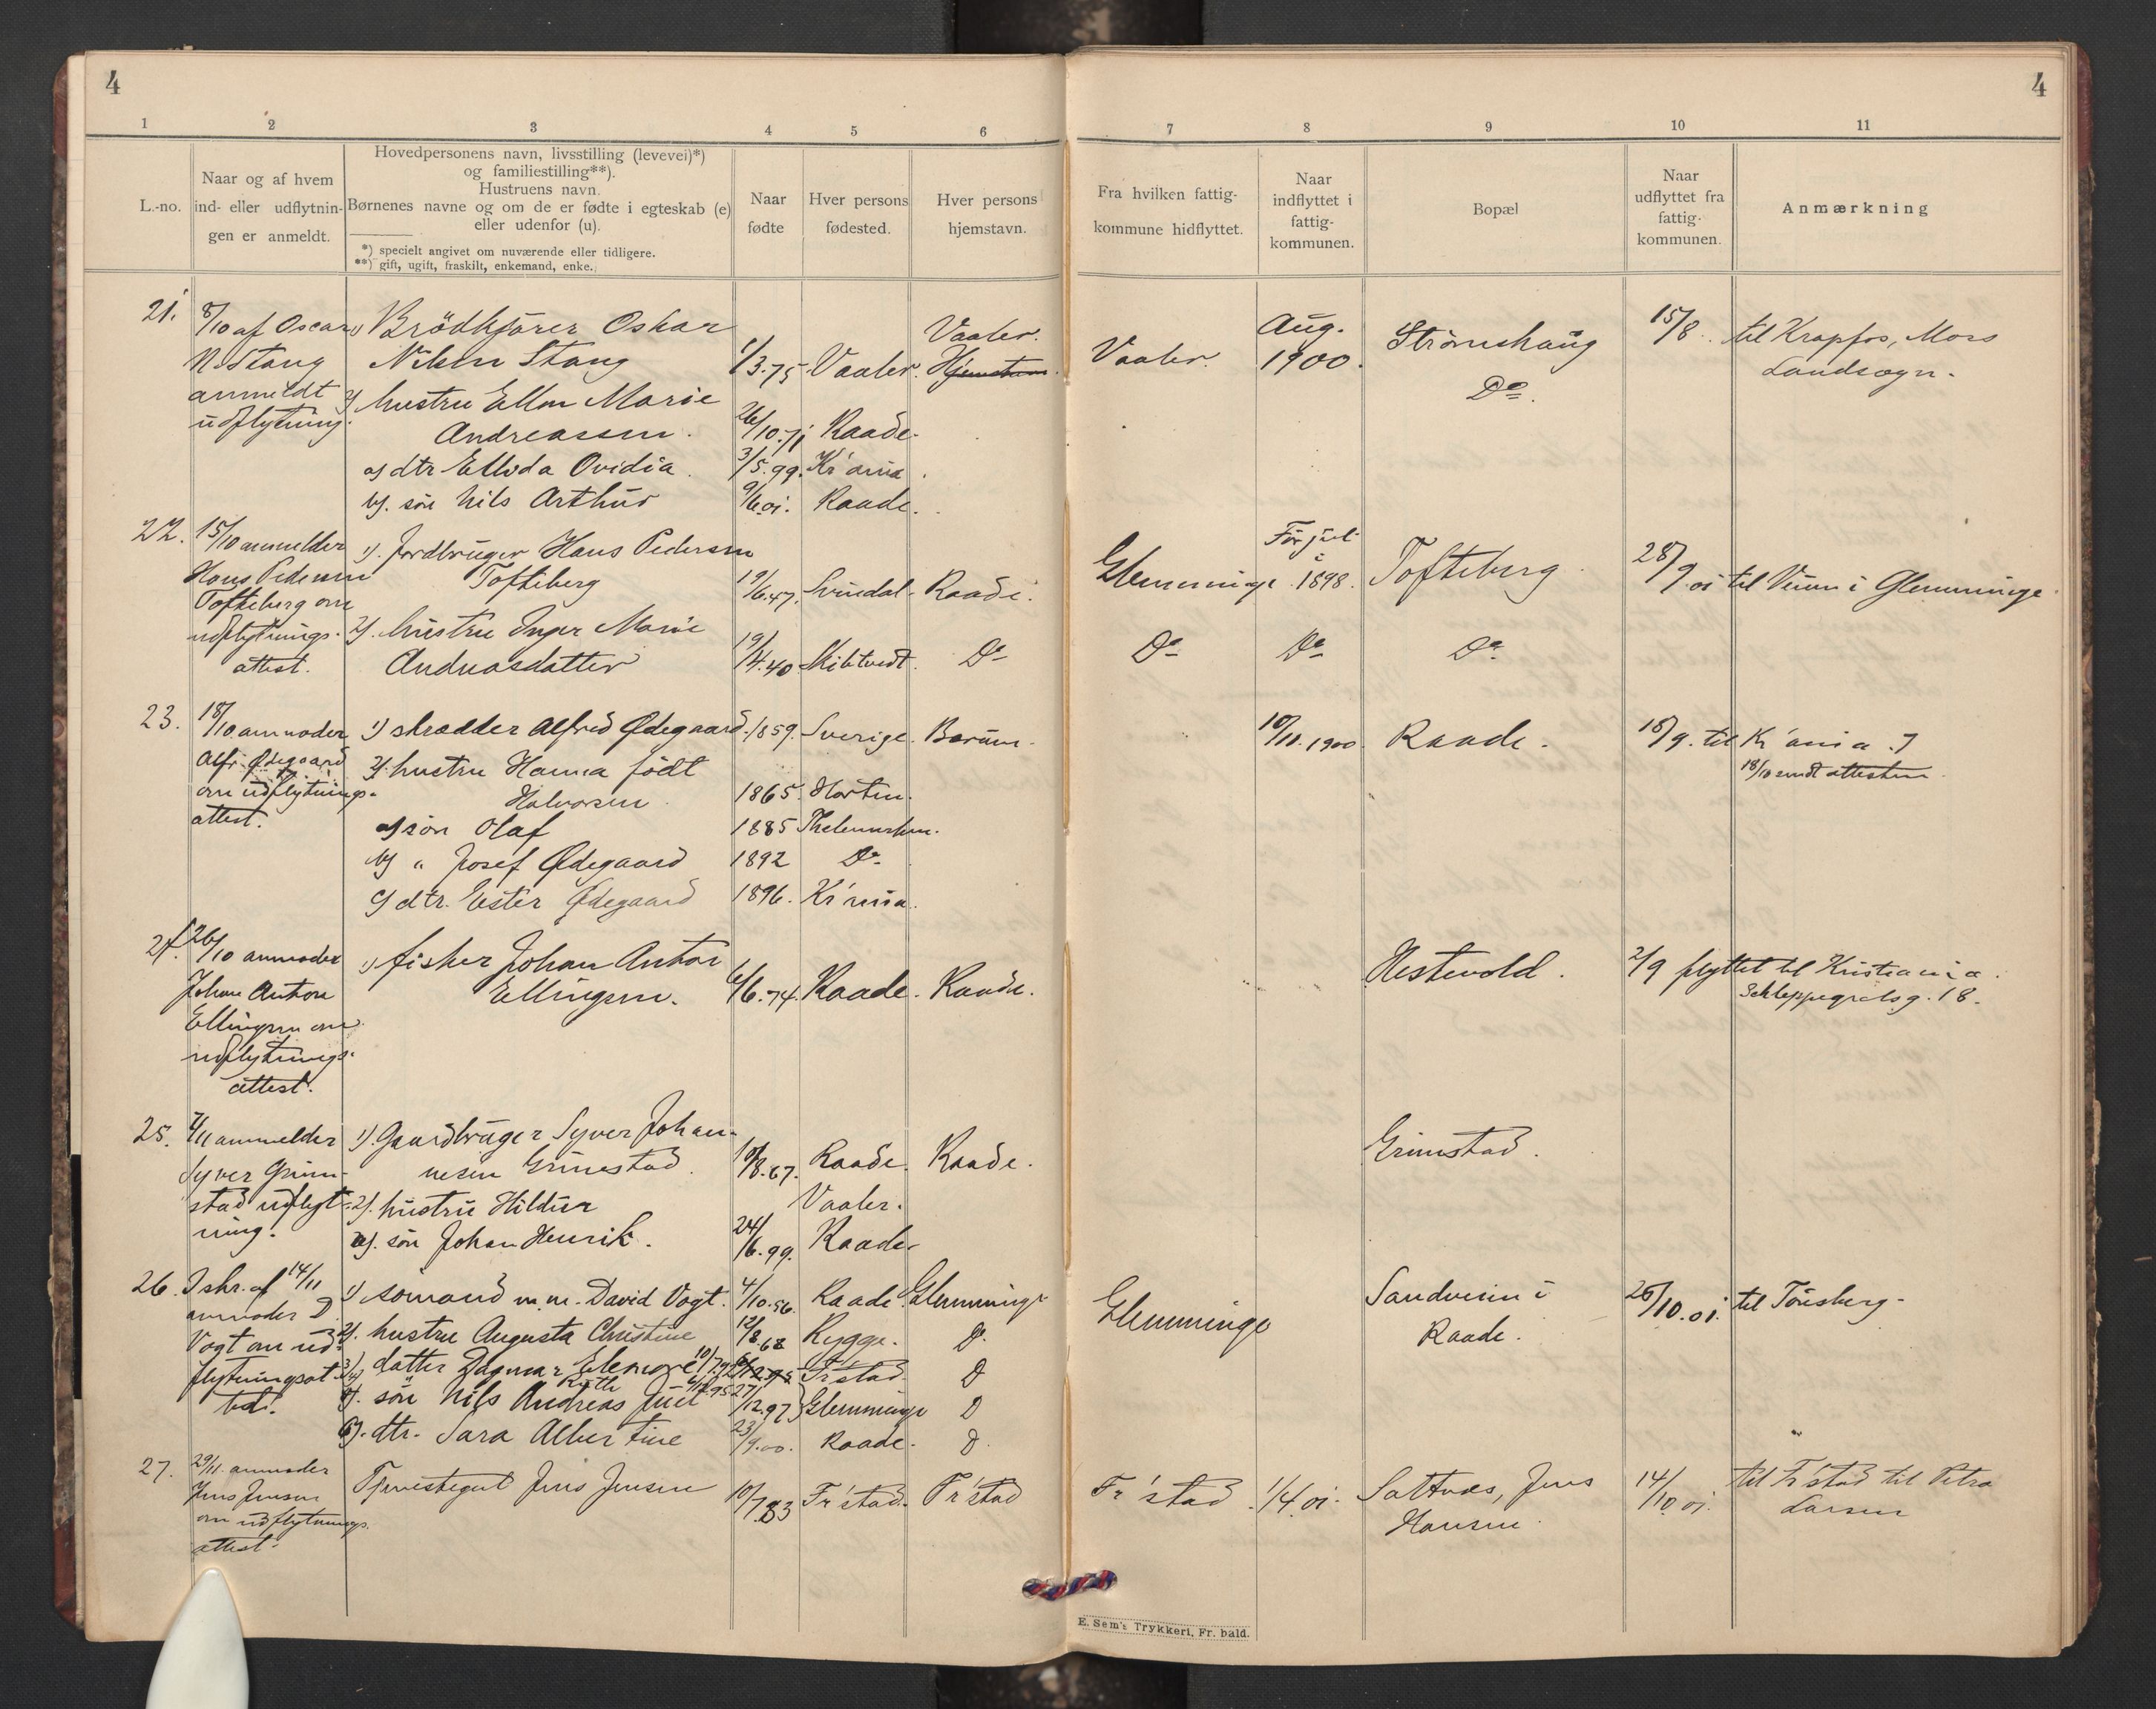 4
4
1 2 3 4 5 6 7 8 9 10 11
L.-no.
Naar og af hvem
ind- eller udflytnin-
gen er anmeldt.
Hovedpersonens navn, livsstilling (levevei)*)
og familiestilling**).
Hustruens navn.
Børnenes navne og om de er fødte i egteskab (e)
eller udenfor (u).
*) specielt angivet om nuværende eller tidligere.
**) gift, ugift, fraskilt, enkemand, enke.
Naar
fødte
Hver persons
fødested.
Hver persons
hjemstavn.
Fra hvilken fattig-
kommune hidflyttet.
Naar
indflyttet i
fattig-
kommunen.
Bopæl
Naar
udflyttet fra
fattig-
kommunen.
Anmærkning
21.
8/10 af Oscar
N. Stang
anmeldt
udflytning.
1) Brödkjører Oskar
Nilsen Stang 1/3.75. Vaaler. Vaaler. Hjemstavn.
2) hustru Ellen Marie
Andreassen. 26/10.71 Raade.
a) dtr Ellida Ovidia. 3/5.99. Kr'ania.
b). søn Nils Arthur 9/6.01. Raade.
Vaaler. Aug. 1900. Strömshaug
Do.
15/8. til Krapfos, Mos
Landsogn.
22.
15/10 anmelder
Hans Pedersen
Tofteberg om
udflytnings-
attest.
1). Jordbruger Hans Pedersen
Tofteberg 19/6.47. Svindal. Raade.
2). hustru Inger Marie
Andreasdatter 19/4.40 Skibtvedt. Do
Glemminge Før jul i 1898. Tofteberg 28/9.01 til Veum i Glemminge
Do Do Do
23.
18/10 anmoder
Alfr. Ødegaard
om udflytnings-
attest.
1) skrædder Alfred Ødegaard. 1859. Sverige. Bærum.
2). hustru Hanna født
Halvorsen. 1865. Horten.
a) søn Olaf 1885 Thelemarken.
b) " Josef Ødegaard 1892 Do
c) dtr. Ester Ødegaard 1896. Kr'ania.
10/11.1900. Raade. 18/9. til Kr'ania.
18/10 sendt attesten.
24.
26/10 anmoder
Johan Anton
Ellingsen om
udflytnings-
attest.
1) fisker Johan Anton
Ellingsen. 6/6.74. Raade. Raade.
Hestevold. 2/9 flyttet til Kristiania.
Schleppegrelsg. 18.
25.
4/11 anmelder
Syver Grim-
stad udflyt-
ning.
1). Gaardbruger Syver Johan-
nesen Grimestad. 10/8.67. Raade. Raade.
2). hustru Hildur Vaaler.
a). søn Johan Henrik. 24/6.99. Raade.
Grimstad.
26.
I skr. af 14/11
anmoder D.
Vogt om ud-
flytningsat-
test.
1) sømand m.m. David Vogt. 4/10.56. Raade. Glemminge
2). hustru Augusta Christine 12/8.68 Rygge. Do
3) datter Dagmar Elenore 10/7.92 Fr'stad. D
4) Ruth 6/12.95
5). søn Nils Andreas Juel 27/12.97 Glemminge D
6). dtr. Sara Albertine 23/9.00. Raade. D.
Glemminge Sandveien i
Raade. 25/10.01. til Tönsberg.
27.
29/11. anmoder
Jens Jensen
om udflytnings-
attest.
Tjenestegut Jens Jensen 10/7.83 Fr'stad. Fr'stad
Fr'stad. 1/4.01. Saltnes, Jens
Hansen.
14/10.01. til Fr'stad til Petra
Larsen
E. Sem's Trykkeri, Fr.hald.